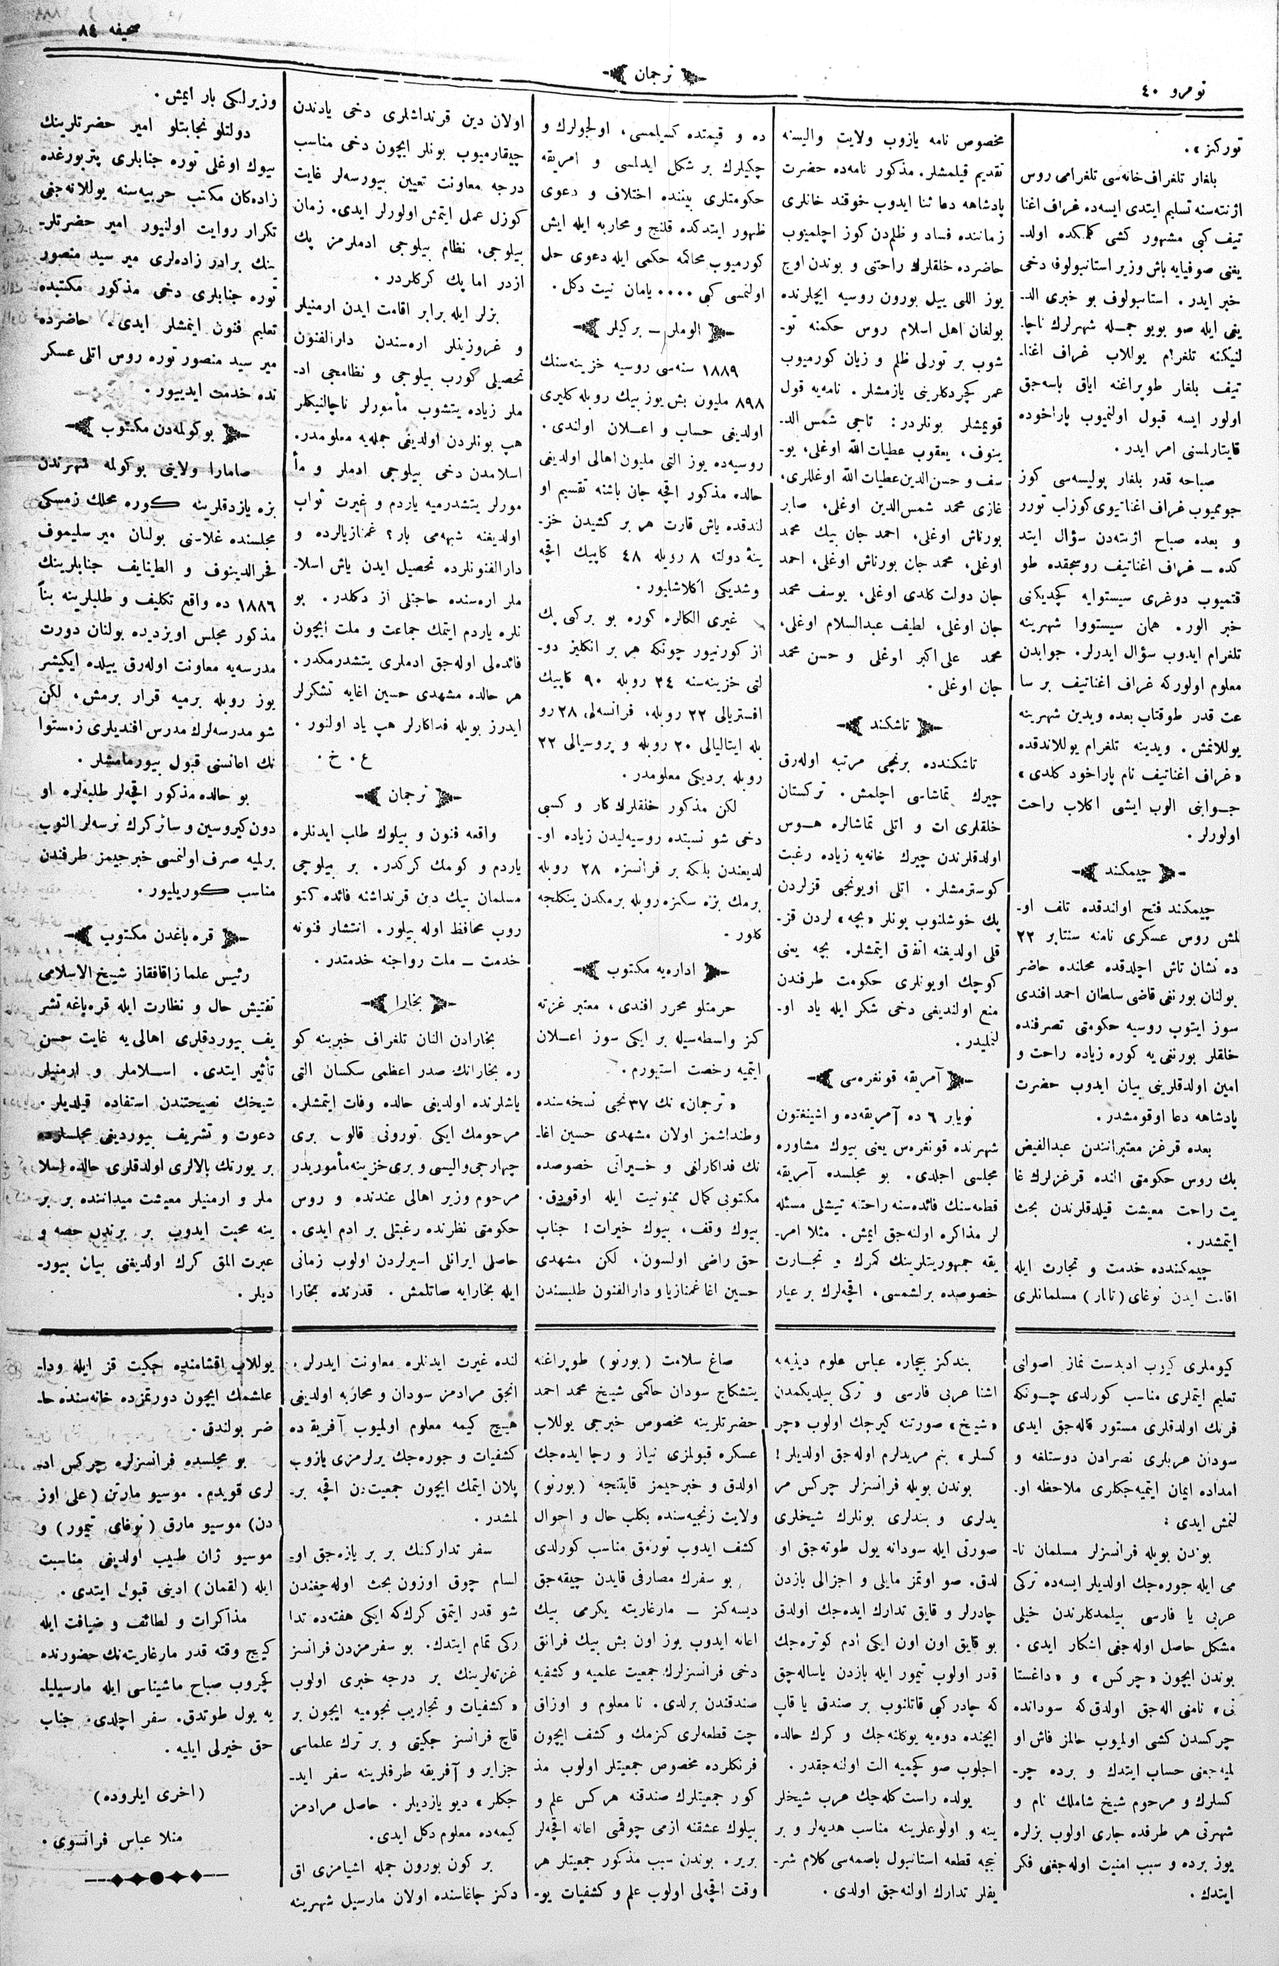 نومرو ٤٠
ترجمان
صحیفه ٨٤
تورکز».
بلغار تلغرافخانه‌سی تلغرامی روس
اژنته‌سنه تسلیم ایتدی ایسه‌ده غراف اغنا
تیف کبی مشهور کشی کلمکده اولد-
یغنی صوفیایه باش وزیر استانبولوف دخی
خبر ایدر. استانبولوف بو خبری الد-
یغی ایله صو بویو جمله شهرلرك ناچا-
لنیکنه تلغرام یوللاب غراف اغنا-
تیف بلغار طوپراغنه ایاق باسه‌جق
اولور ایسه قبول اولنمیوب پاراخوده
قایتارلمسنی امر ایدر.
صباحه قدر بلغار پولیسه‌سی کوز
جومیوب غراف اغناتیوی کوزلب تورر
و بعده صباح اژنته‌دن سؤال ایتد
کده ــ غراف اغناتیف روسجقده طو
قتمیوب دوغری سیستوایه کچدیکنی
خبر الور. همان سیستووا شهرینه
تلغرام ایدوب سؤال ایدرلر. جوابدن
معلوم اولورکه غراف اغناتیف بر سا
عت قدر طوقتاب بعده ویدین شهرینه
یوللانمش. ویدینه تلغرام یوللاندقده
«غراف اغناتیف نام پاراخود کلدی»
جوابنی الوب ایشی اکلاب راحت
اولورلر.
چیمکند
چیمکند فتح اولندقده تلف او-
لمش روس عسکری نامنه سنتابر ٢٢
ده نشان تاش اچلدقده محلنده حاضر
بولنان بورنغی قاضی سلطان احمد افندی
سوز ایتوب روسیه حکومتی تصرفنده
خلقلر بورنغی یه کوره زیاده راحت و
امین اولدقلرینی بیان ایدوب حضرت
پادشاهه دعا اوقومشدر.
بعده قرغز معتبرانندن عبدالفیض
بك روس حکومتی النده قرغزلرك غا
یت راحت معیشت قیلدقلرندن بحث
ایتمشدر.
چیمکندده خدمت و تجارت ایله
اقامت ایدن نوغای (تاتار) مسلمانلری
مخصوص نامه یازوب ولایت والیسنه
تقدیم قیلمشلر. مذکور نامه‌ده حضرت
پادشاهه دعا ثنا ایدوب خوقند خانلری
زماننده فساد و ظلمدن کوز اچلمیوب
حاضرده خلقلرك راحتنی و بوندن اوج
یوز اللی ییل بورون روسیه ایچلرنده
بولغان اهل اسلام روس حکمنه تو-
شوب بر تورلی ظلم و زیان کورمیوب
عمر کچردکلرینی یازمشلر. نامه‌یه قول
قویمشلر بونلردر: تاجی شمس الد-
ینوف، یعقوب عطیات الله اوغلی، یو-
سف و حسن الدین عطیات الله اوغللری،
غازی محمد شمس الدین اوغلی، صابر
بورناش اوغلی، احمد جان بیك محمد
اوغلی، محمد جان بورناش اوغلی، احمد
جان دولت کلدی اوغلی، یوسف محمد
جان اوغلی، لطیف عبدالسلام اوغلی،
محمد علی اکبر اوغلی و حسن محمد
جان اوغلی.
تاشکند
تاشکندده برنچی مرتبه اوله‌رق
چیرك تماشاسی اچلمش. ترکستان
خلقلری ات و اتلی تماشالره هوس
اولدقلرندن چیرك خانه‌یه زیاده رغبت
کوسترمشلر. اتلی اویونجی قزلردن
پك خوشلنوب بونلر «بچه» لردن قز-
قلی اولدیغنه اتفق ایتمشلر. بچه یعنی
کوچك اویونلری حکومت طرفندن
منع اولندیغی دخی شکر ایله یاد او-
لنملیدر.
آمریقه قونغره‌سی
نویابر ٦ ده آمریقه‌ده و اشینغتون
شهرنده قونغره‌س یعنی بیوك مشاوره
مجلسی اچلدی. بو مجلسده آمریقه
قطعه‌سنك فائده‌سنه راحتنه تیشلی مسئله
لر مذاکره اولنه‌جق ایمش. مثلا امر-
یقه جمهوریتلرینك کمرك و تجارت
خصوصده برلشمسی، اقچه‌لرك بر عیار
ده و قیمتده کسیلمسی، اولچولرك و
چکیلرك بر شکل ایدلمسی و امریقه
حکومتلری بیننده اختلاف و دعوی
ظهور ایتدکده قلنج و محاربه ایله ایش
کورمیوب محاکمه حکمی ایله دعوی حل
اولنمسی کبی .... یامان نیت دکل.
الوملر ــ برکیلر
١٨٨٩ سنه‌سی روسیه خزینه‌سنك
٨٩٨ ملیون بش یوز بیك روبله کلیری
اولدیغی حساب و اعلان اولندی.
روسیه‌ده یوز التی ملیون اهالی اولدیغی
حالده مذکور اقچه جان باشنه تقسیم او
لندقده یاش قارت هر بر کشیدن خز-
ینۀ دولته ٨ روبله ٤٨ کاپیك اقچه
وشدیکی اکلاشایور.
غیری الکالره کوره بو برکی پك
از کورنیور چونکه هر بر انکلیز دو-
لتی خزینه‌سنه ٣٤ روبله ٩٠ کاپیك
افستریالی ٢٢ روبله، فرانسه‌لی ٢٨ رو
بله ایتالیالی ٢٠ روبله و پروسیالی ٢٢
روبله بردیکی معلومدر.
لکن مذکور خلقلرك کار و کسبی
دخی شو نسبتده روسیه‌لیدن زیاده او-
لدیعندن بلکه بر فرانسزه ٢٨ روبله
برمك بزه سکزه روبله برمکدن ینکلجه
کلور.
اداره‌یه مکتوب
حرمتلو محرر افندی، معتبر غزته
کز واسطه‌سیله بر ایکی سوز اعلان
ایتمیه رخصت استیورم.
«ترجمان» نك ٣٧ نجی نسخه‌سنده
وطنداشمز اولان مشهدی حسین اغا-
نك فداکارلغی و خیراتی خصوصده
مکتوبی کمال ممنونیت ایله اوقودق.
بیوك وقف، بیوك خیرات! جناب
حق راضی اولسون، لکن مشهدی
حسین اغا غمنازیا و دارالفنون طلبه‌سندن
اولان دین قرنداشلری دخی یادندن
چیقارمیوب بونلر ایچون دخی مناسب
درجه معاونت تعیین بیورسه‌لر غایت
کوزل عمل ایتمش اولورلر ایدی. زمان
بیلوجی، نظام بیلوجی ادملرمز پك
ازدر اما پك کرکلردر.
بزلر ایله برابر اقامت ایدن ارمنیلر
و غروزینلر اره‌سندن دارالفنون
تحصیلی کورب بیلوجی و نظامجی اد-
ملر زیاده یتشوب مأمورلر ناچالنیکلر
هپ بونلردن اولدیغی جمله‌یه معلومدر.
اسلامدن دخی بیلوجی ادملر و مأ
مورلر یتشدرمیه یاردم و غیرت ثواب
اولدیغنه شبهه‌می بار؟ غمنازیالرده و
دارالفنونلرده تحصیل ایدن یاش اسلا-
ملر اره‌سنده حاجتلی از دکلدر. بو
نلره یاردم ایتمك جماعت و ملت ایچون
فائده‌لی اوله‌جق ادملری یتشدرمکدر.
هر حالده مشهدی حسین اغایه تشکرلر
ایدرز بویله فداکارلر هپ یاد اولنور.
ع. خ.
ترجمان
واقعه فنون و بیلوك طلب ایدنلره
یاردم و کومك کرکدر. بر بیلوجی
مسلمان بیك دین قرنداشنه فائده کتو
روب محافظ اوله بیلور. انتشار فنونه
خدمت ــ ملت رواجنه خدمتدر.
بخارا
بخارادن النان تلغراف خبرینه کو
ره بخارانك صدر اعظمی سکسان التی
یاشلرنده اولدیغی حالده وفات ایتمشلر.
مرحومك ایکی تورونی قالوب بری
چهارجی والیسی و بری خزینه مأموریدر
مرحوم وزیر اهالی عندنده و روس
حکومتی نظرنده رغبتلی بر ادم ایدی.
حاصلی ایرانلی اسیرلردن اولوب زمانی
ایله بخارایه صاتلمش. قدرنده بخارا
وزیرلکی بار ایمش.
دولتلو نجابتلو امیر حضرتلرینك
بیوك اوغلی توره جنابلری پتربورغده
زاده‌کان مکتب حربیه‌سنه یوللانه‌جغی
تکرار روایت اولنیور امیر حضرتلر-
ینك برادر زاده‌لری میر سید منصور
توره جنابلری دخی مذکور مکتبده
تعلیم فنون ایتمشلر ایدی. حاضرده
میر سید منصور توره روس اتلی عسکر
نده خدمت ایدییور.
بوکولمه‌دن مکتوب
صامارا ولایتی بوکولمه شهرندن
بزه یازدقلرینه کوره محلك زمسکی
مجلسنده غلاسنی بولنان میر سلیموف
فخرالدینوف و الطینایف جنابلرینك
١٨٨٦ ده واقع تکلیف و طلبلرینه بناً
مذکور مجلس اویزدیده بولنان دورت
مدرسه‌یه معاونت اوله‌رق ییلده ایکیشر
یوز روبله برمیه قرار برمش. لکن
شو مدرسه‌لرك مدرس افندیلری زمستوا
نك اعانسنی قبول بیورمامشلر.
بو حالده مذکور اقچه‌لر طلبه‌لره او
دون کیروسین و سائر کرك نرسه‌لر النوب
برلمیه صرف اولنمسی خبرجیمز طرفندن
مناسب کوریلیور.
قره باغدن مکتوب
رئیس علما زاقافقاز شیخ الاسلامی
تفتیش حال و نظارت ایله قره‌باغه تشر
یف بیوردقلری اهالی یه غایت حسن
تأثیر ایتدی. اسلاملر و ارمنیلر
شیخك نصیحتندن استفاده قیلدیلر.
دعوت و تشریف بیوردیغی مجلسلرده
بر یورتك بالالری اولدقلری حالده اسلا
ملر و ارمنیلر معیشت میداننده بر بر
ینه محبت ایدوب بر برندن حصه و
عبرت المق کرك اولدیغنی بیان بیور-
دیلر.
کیوملری کیوب ابدبست نماز اصولنی
تعلیم ایتملری مناسب کورلدی چونکه
فرنك اولدقلری مستور قاله‌جق ایدی
سودان عربلری نصرادن دوستلغه و
امداده ایمان ایتمیه‌جکلری ملاحظه او-
لنمش ایدی:
بوندن بویله فرانسزلر مسلمان نا-
می ایله جوره‌جك اولدیلر ایسه‌ده ترکی
عربی یا فارسی بیلمدکلرندن خیلی
مشکل حاصل اوله‌جغی اشکار ایدی.
بوندن ایچون «چرکس» و «داغستا
نی» نامنی اله‌جق اولدق که سودانده
چرکسدن کشی اولمیوب حالمز فاش او
لمیه‌جغنی حساب ایتدك و برده چر-
کسلرك و مرحوم شیخ شاملك نام و
شهرتی هر طرفده جاری اولوب بزلره
یوز برده و سبب امنیت اوله‌جغی فکر
ایتدك.
بندکز بیچاره عباس علوم دینیه‌یه
اشنا عربی فارسی و ترکی بیلدیکمدن
«شیخ» صورتنه کیرجك اولوب «چر
کسلر» بنم مریدلرم اوله‌جق اولدیلر!
بوندن بویله فرانسزلر چرکس مر
یدلری و بندلری بونلرك شیخلری
صورتی ایله سودانه یول طوته‌جق او
لدق. صو اوتمز مایلی و اجزالی بازدن
چادرلر و قایق تدارك ایده‌جك اولدق
بو قایق اون اون ایکی ادم کوتره‌جك
قدر اولوب تیمور ایله بازدن یاساله‌جق
که چادر کبی قاتلنوب بر صندق یا قاپ
ایچنده دوه‌یه یوکلنه‌جك و کرك حالده
اچلوب صو کچمیه الت اولنه‌جقدر.
یولده راست کله‌جك عرب شیخلر
ینه و اولوغلرینه مناسب هدیه‌لر و بر
نیجه قطعه استانبول باصمه‌سی کلام شر-
یفلر تدارك اولنه‌جق اولدی.
صاغ سلامت (بورنو) طوپراغنه
یتشکاج سودان حاکمی شیخ محمد احمد
حضرتلرینه مخصوص خبرجی یوللاب
عسکره قبولمزی نیاز و رجا ایده‌جك
اولدق و خبرجیمز قایتنجه (بورنو)
ولایت زنجیه‌سنده بکلب حال و احوال
کشف ایدوب تورمق مناسب کورلدی
بو سفرك مصارفی قایدن چیقه‌جق
دیسه‌کز ــ مارغاریته یکرمی بیك
اعانه ایدوب یوز اون بش بیك فرانق
دخی فرانسزلرك جمعیت علمیه و کشفیه
صندقندن برلدی. نا معلوم و اوزاق
چت قطعه‌لری کزمك و کشف ایچون
فرنکلرده مخصوص جمعیتلر اولوب مذ
کور جمعیتلرك صندقنه هرکس علم و
بیلوك عشقنه ازمی چوقمی اعانه اقچه‌لر
بریر. بوندن سبب مذکور جمعیتلر هر
وقت اقچه‌لی اولوب علم و کشفیات یو-
لنده غیرت ایدنلره معاونت ایدرلر.
انجق مرادمز سودان و محاربه اولدیغی
هیچ کیمه معلوم اولمیوب آفریقه ده
کشفیات و جوره‌جك یرلرمزی یازوب
پلان ایتمك ایچون جمعیتدن اقچه بر-
لمشدر.
سفر تدارکنك بر بر یازه‌جق او-
لسام چوق اوزون بحث اوله‌جغندن
شو قدر ایتمق کرك که ایکی هفته‌ده تدا
رکی تمام ایتدك. بو سفرمزدن فرانسز
غزته‌لرینك بر درجه خبری اولوب
«کشفیات و تجاریب نجومیه ایچون بر
قاچ فرانسز جکیتی و بر ترك علماسی
جزایر و آفریقه طرفلرینه سفر اید-
جکلر» دیو یازدیلر. حاصل مرادمز
کیمه‌ده معلوم دکل ایدی.
بر کون بورون جمله اشیامزی اق
دکز جاغاسنده اولان مارسیل شهرینه
یوللاب اقشامنده چکیت قز ایله ودا-
علشمك ایچون دورتمزده خانه‌سنده حا-
ضر بولندق.
بو مجلسده فرانسزلره چرکس اد-
لری قویدم. موسیو مارتن (علی اوز
دن) موسیو مارق (نوغای تیمور) و
موسیو ژان طبیب اولدیغی مناسبت
ایله (لقمان) ادینی قبول ایتدی.
مذاکرات و لطائف و ضیافت ایله
کیچ وقته قدر مارغاریته‌نك حضورنده
کچروب صباح ماشیناسی ایله مارسیلیا-
یه یول طوتدق. سفر اچلدی. جناب
حق خیرلی ایلیه.
(اخری ایلروده)
منلا عباس فرانسوی.